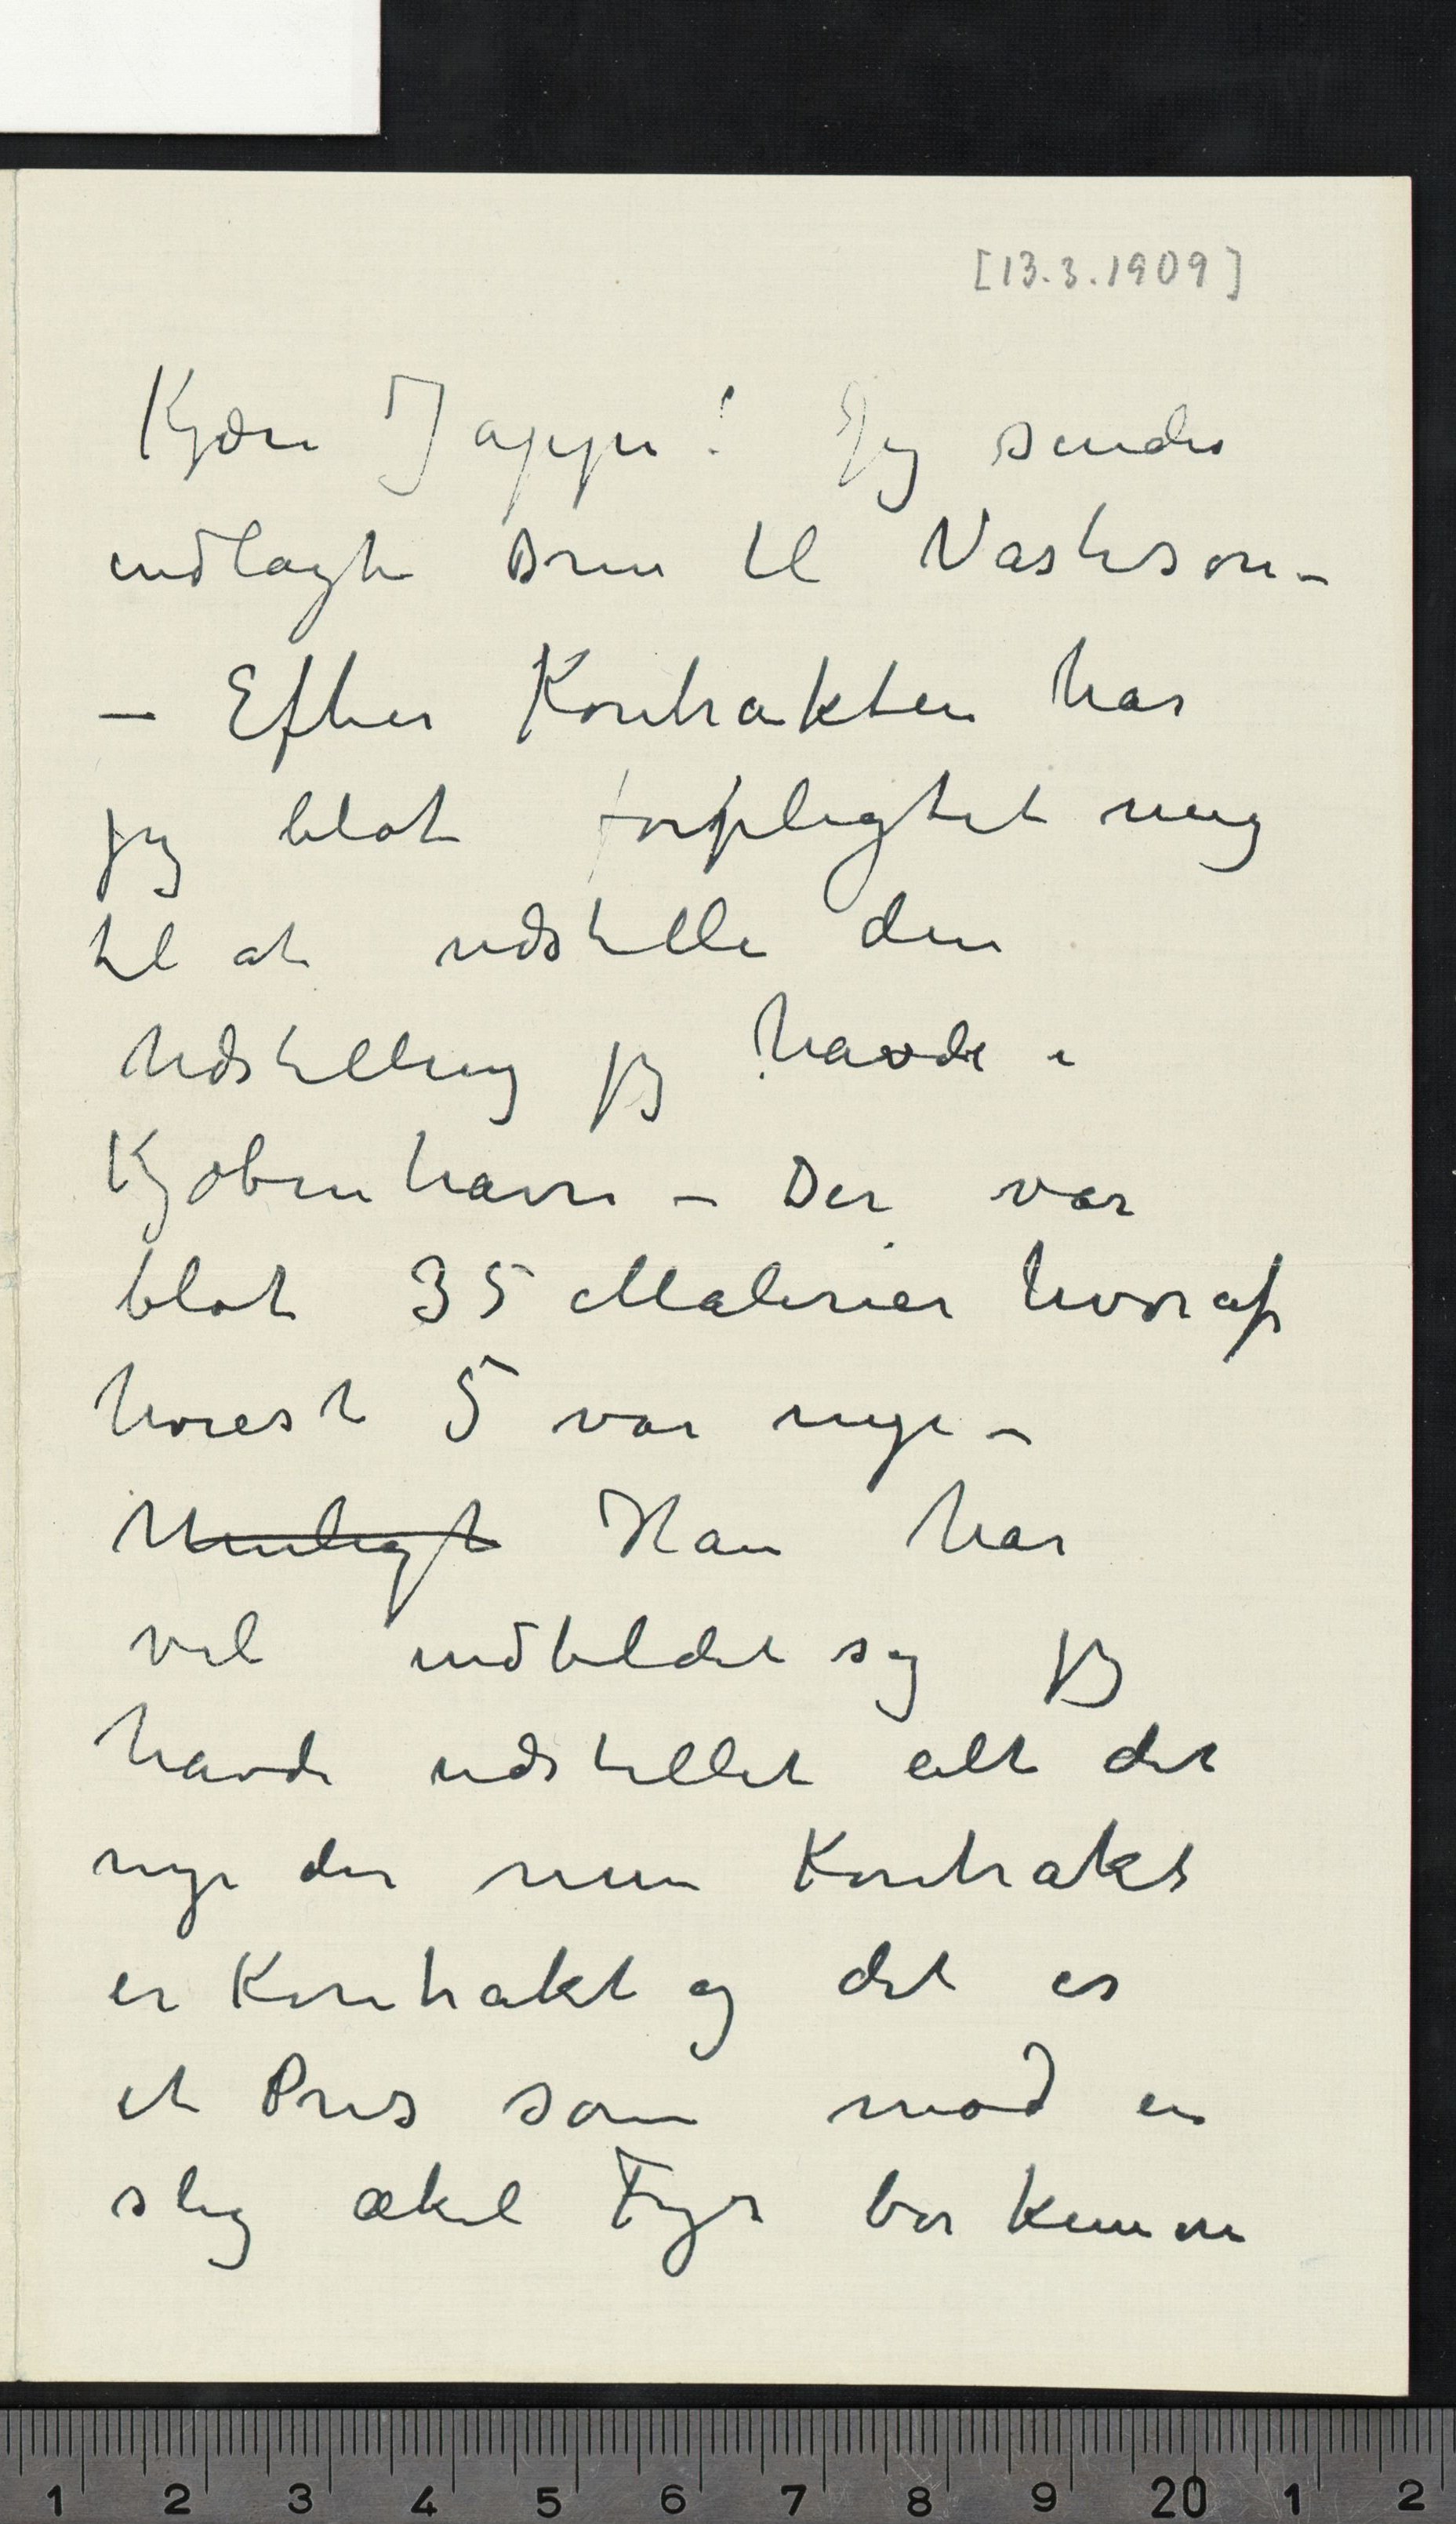 [13.3.1909]
Kjære Jappe! Jeg sender
indlagte Brev til Vasteson –
– Efter Kontrakten har
jeg blot forpligtet mig
til at udstille den
Udstilling jeg havde i
Kjøbenhavn – Der var
blot 35 Malerier hvoraf
høiest 5 var nye –
Han har
vel indbildt sig jeg
havde udstillet alt det
nye der men Kontrakt
er Kontrakt og det er
et Pris som mod en
slig ækel Fyr bør kunne
1 2 3 4 5 6 7 8 9 20 1 2